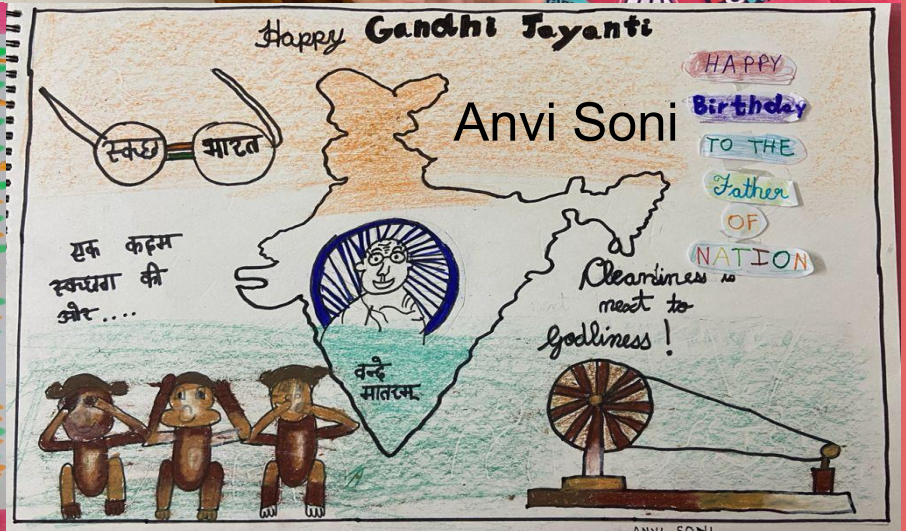 Happy Gandhi Jayanti
Anvi Soni
HAPPY
Birthday
TO THE
Father
OF
NATION
स्वच्छ भारत
एक कदम
स्वच्छता की
ओर....
Cleanliness is
next to
Godliness !
वन्दे
मातरम्
ANVI SONI